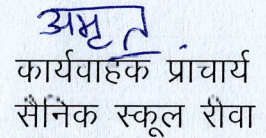 अमृत
कार्यवाहक प्राचार्य
सैनिक स्कूल रीवा